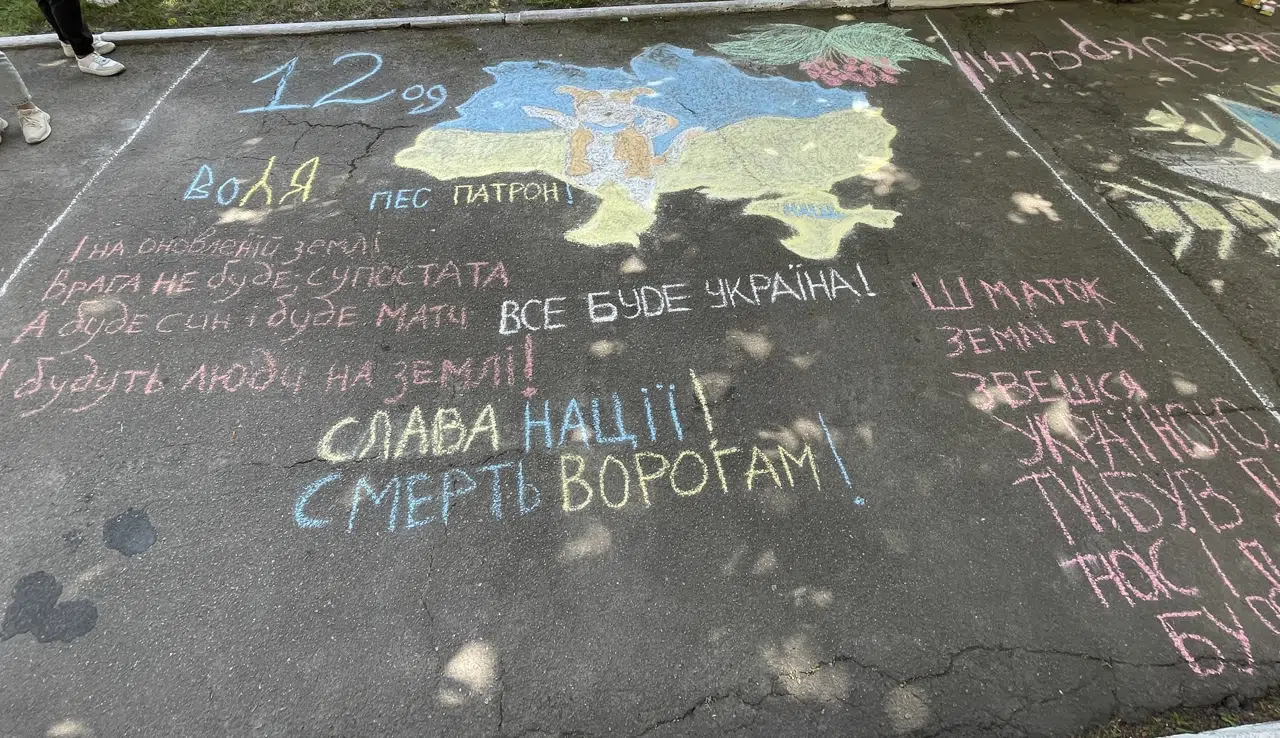 12 09
ВОЛЯ
ПЕС ПАТРОН!
І на оновленій землі
Врага не буде, супостата
А буде син і буде мати
І будуть люди на землі!
ВСЕ БУДЕ УКРАЇНА!
СЛАВА НАЦІЇ!
СМЕРТЬ ВОРОГАМ!
ШМАТОК
ЗЕМЛІ ТИ
ЗВЕШСЯ
УКРАЇНОЮ
ТИ БУВ
НАС І
БУ
Україні